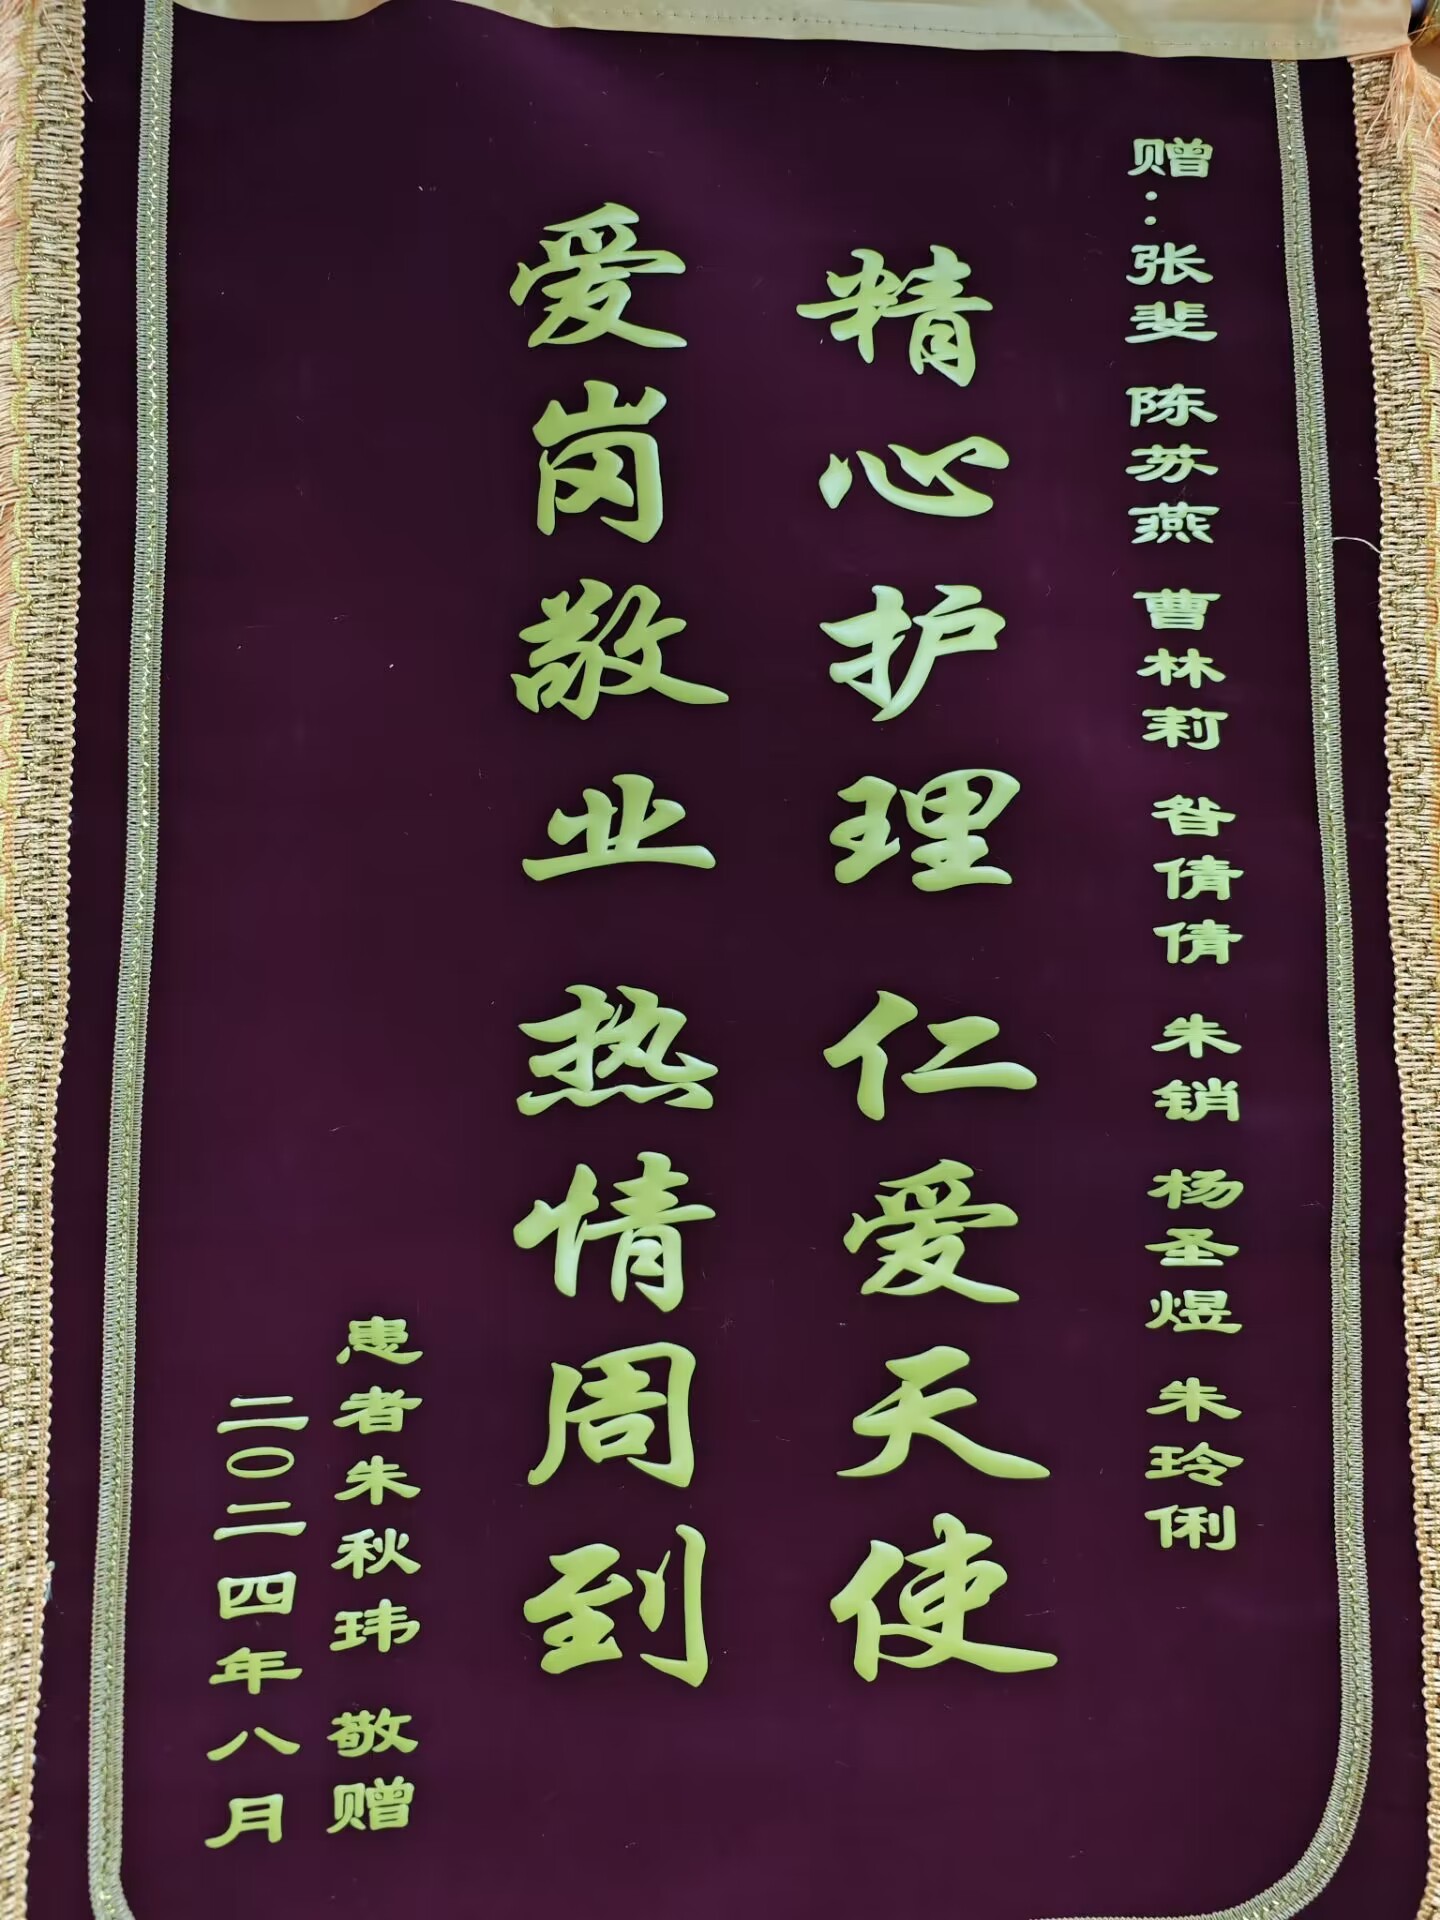 赠：张斐 陈苏燕 曹林莉 昝倩倩 朱销 杨圣煜 朱玲俐
精心护理仁爱天使
爱岗敬业热情周到
患者朱秋玮 敬赠
二〇二四年八月